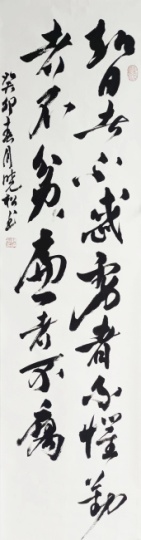 知者不惑勇者不惧勤
者不贫廉者不辱
癸卯春月晓松书